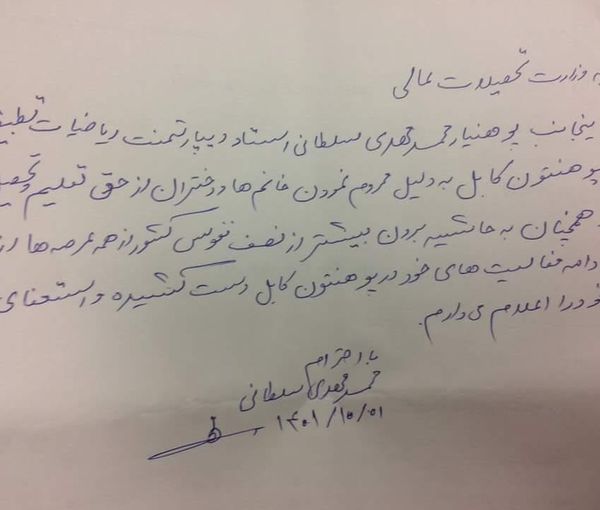 به وزارت تحصیلات عالی
ینجانب پوهنیار محمد مهدی سلطانی استاد دیپارتمنت ریاضیات تطبیق
پوهنتون کابل به دلیل محروم نمودن خانم‌ها و دختران از حق تعلیم و تحصیل
و همچنان به حاشیه بردن بیشتر از نصف نفوس کشور از همه عرصه‌ها، از
دامه فعالیت های خود در پوهنتون کابل دست کشیده و استعفای
خود را اعلام می‌دارم.
با احترام
محمد مهدی سلطانی
۱۴۰۱/۱۰/۰۱